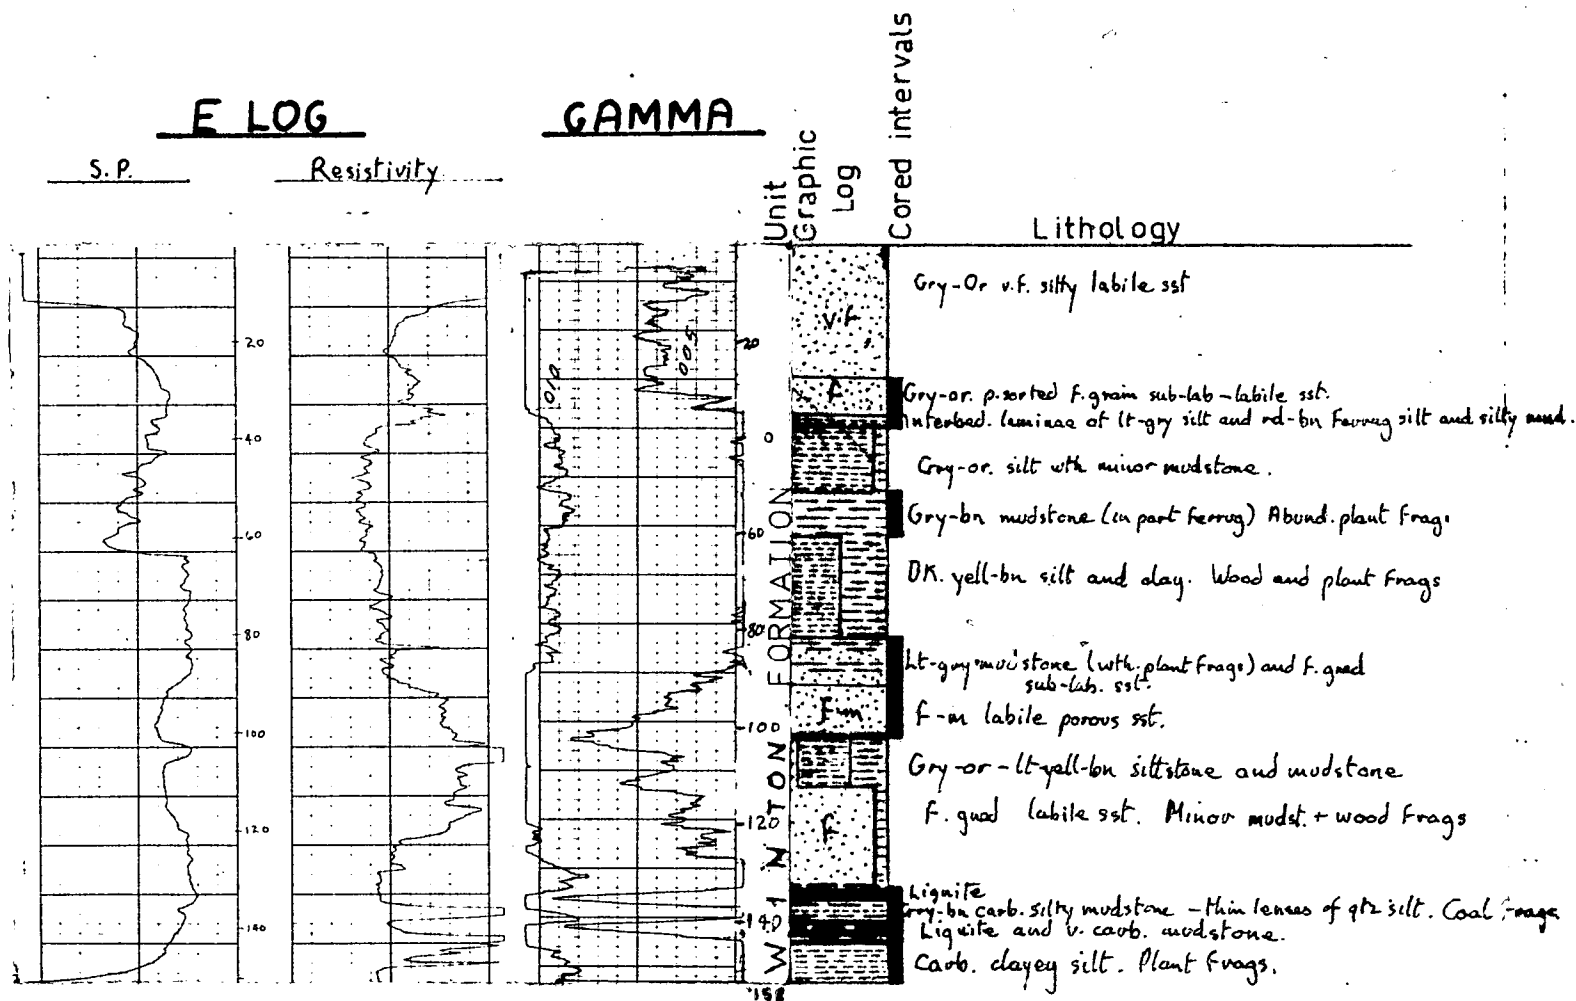 E LOG
GAMMA
S.P.
Resistivity
Unit
Graphic
Log
Cored intervals
Lithology
20
40
60
80
100
120
140
010
500
20
0
60
80
100
120
140
158
WINTON FORMATION
v.f
f
F-m
F
Gry-Or v.f. silty labile sst
Gry-or. p.sorted f.grain sub-lab-labile sst.
Interbed. laminae of lt-gry silt and rd-bn Ferrug silt and silty mud.
Gry-or. silt wth minor mudstone.
Gry-bn mudstone (in part ferrug) Abund. plant frag.
DK. yell-bn silt and clay. Wood and plant frags
Lt-gry mudstone (wth. plant frags) and f. gned
sub-lab. sst.
f-m labile porous sst.
Gry-or-lt-yell-bn siltstone and mudstone
F. gned labile sst. Minor mudst. + wood Frags
Lignite
Gry-bn carb. silty mudstone - thin lenses of qtz silt. Coal frags
Lignite and v. carb. mudstone.
Carb. clayey silt. Plant frags.